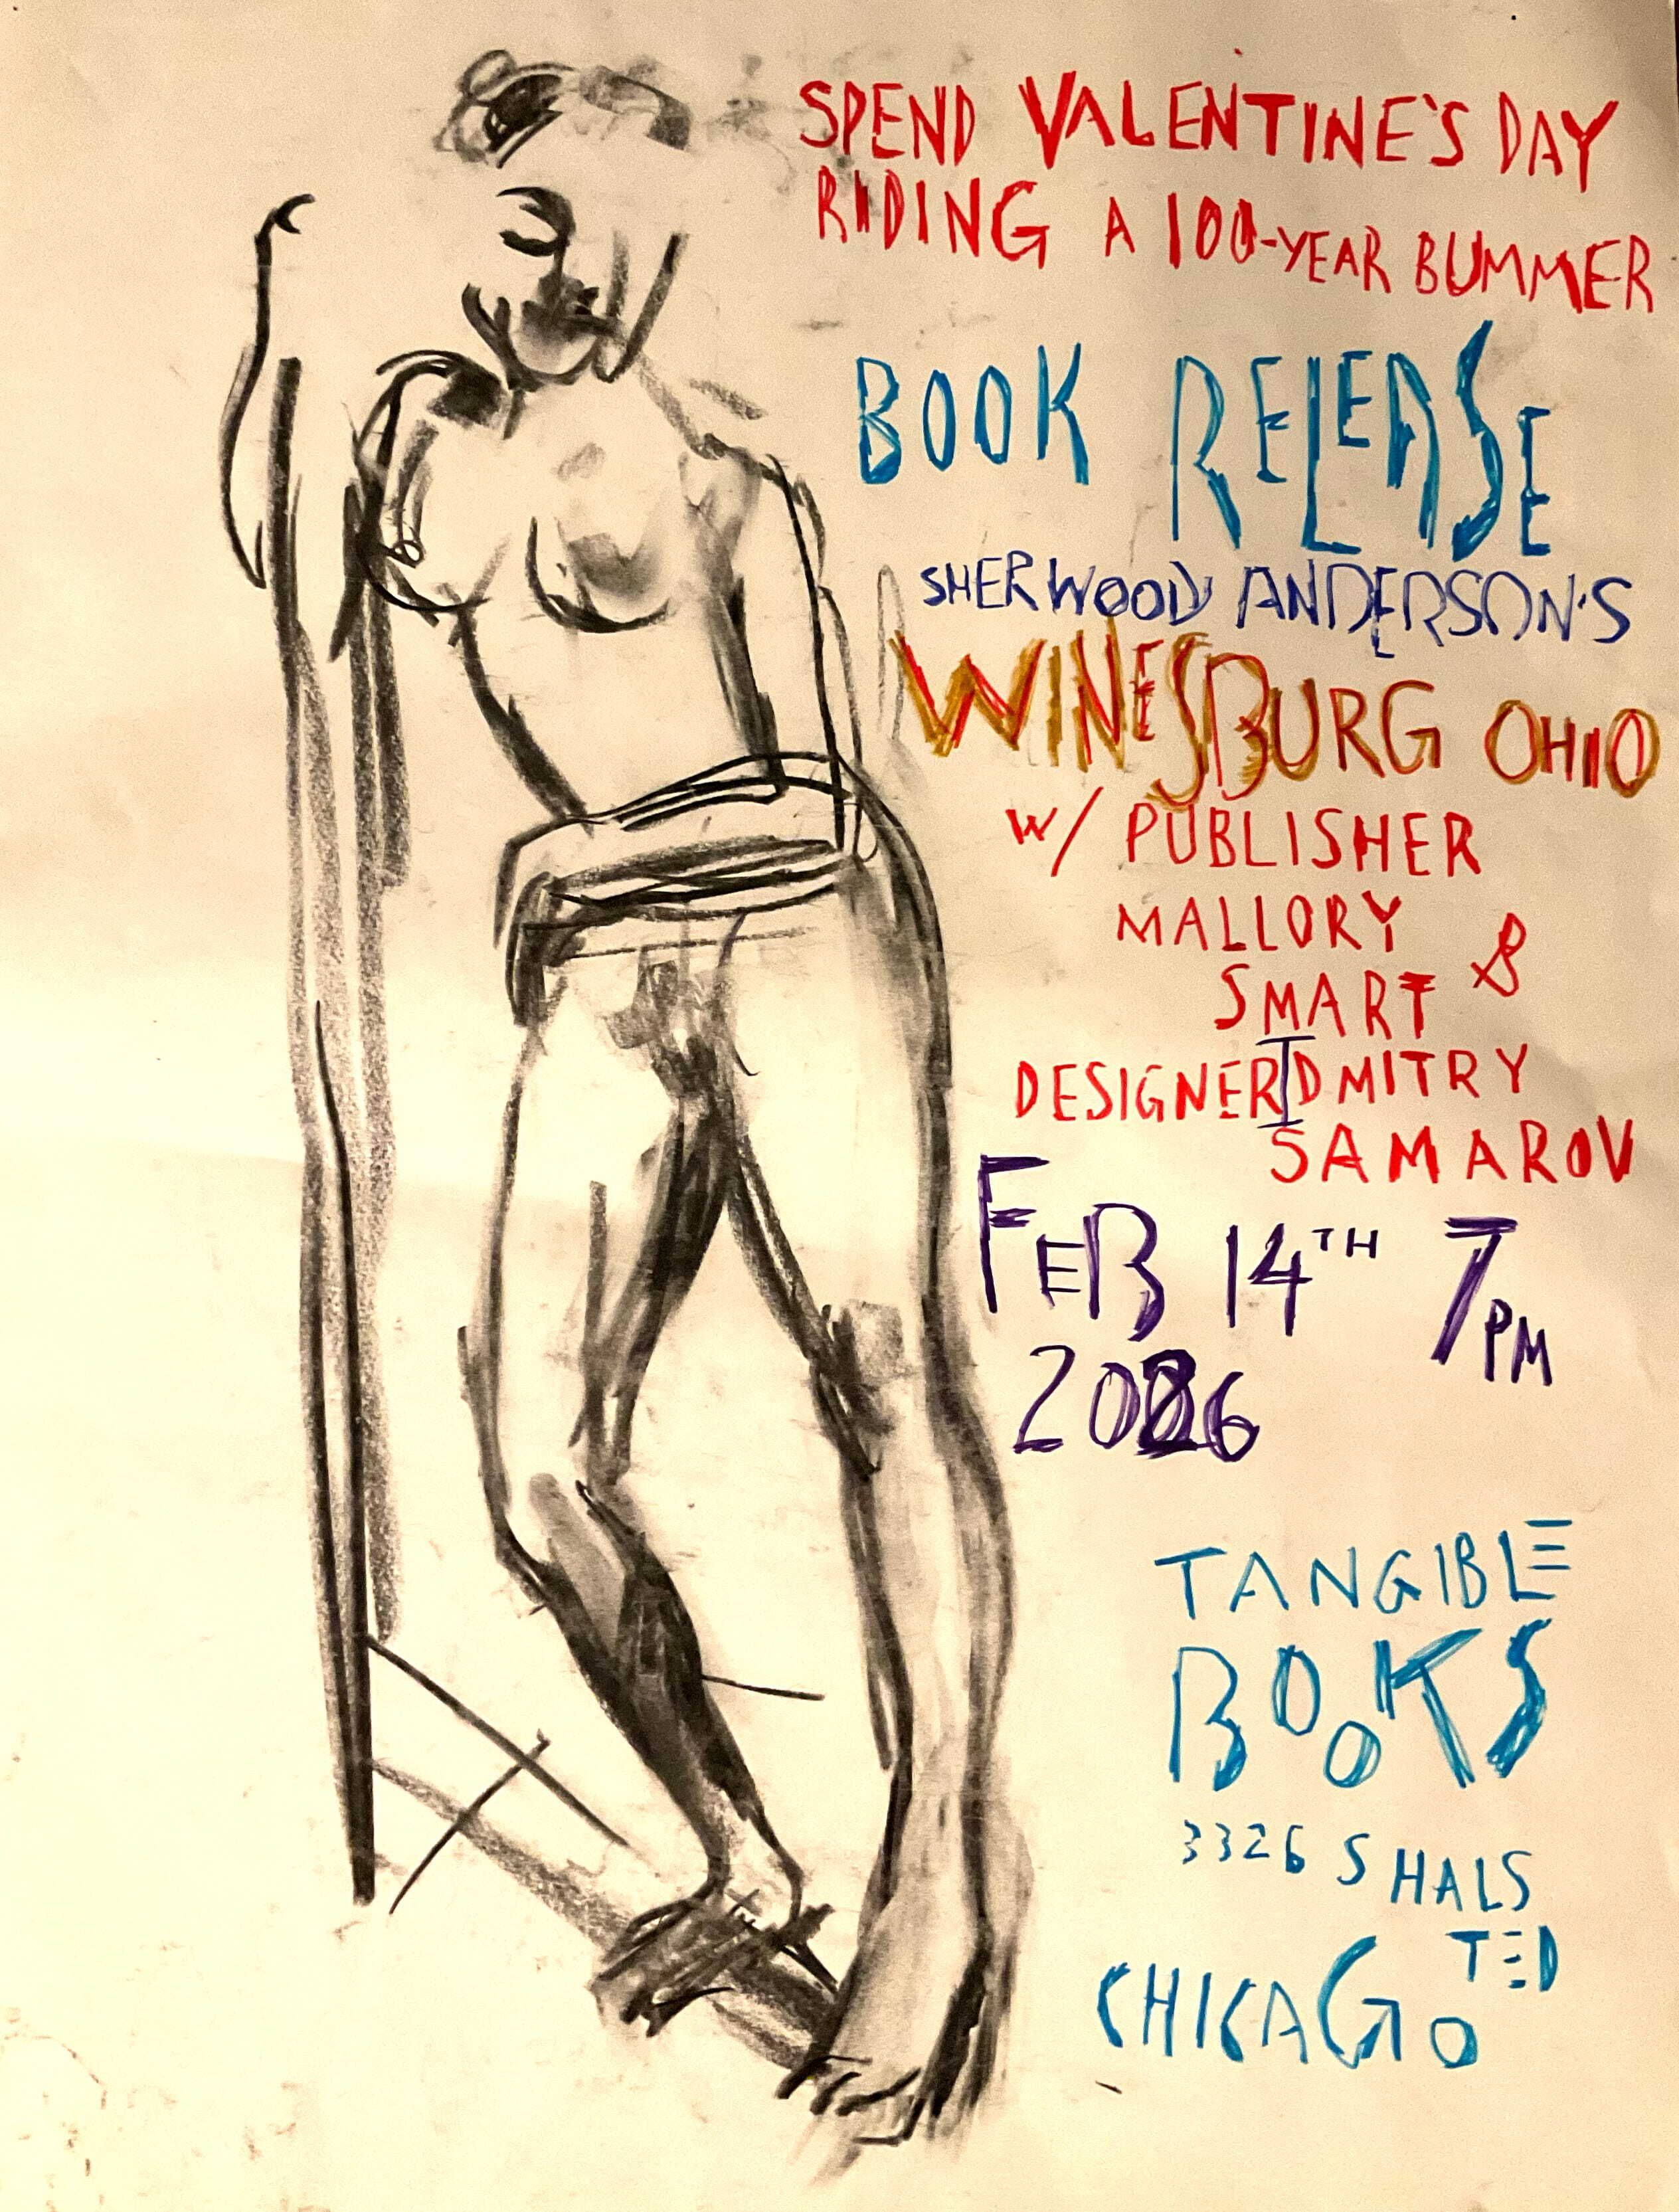 SPEND VALENTINE'S DAY
RIDING A 100-YEAR BUMMER
BOOK RELEASE
SHERWOOD ANDERSON'S
WINESBURG OHIO
W/ PUBLISHER
MALLORY
SMART &
DESIGNER DMITRY
SAMAROV
FEB 14TH 7PM
2026
TANGIBLE
BOOKS
3326 S HALS
TED
CHICAGO